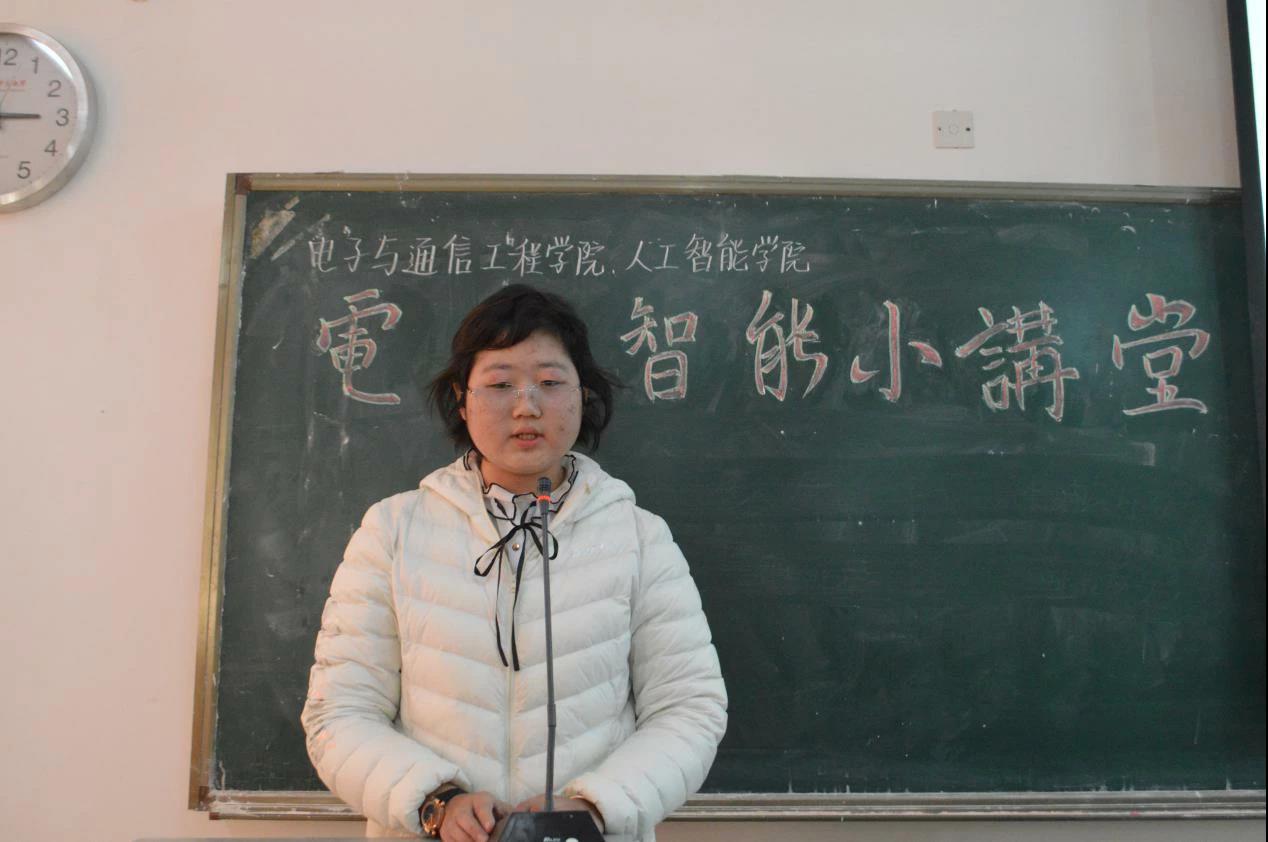 12
1
2
3
4
5
电子与通信工程学院、人工智能学院
電 智能小講堂